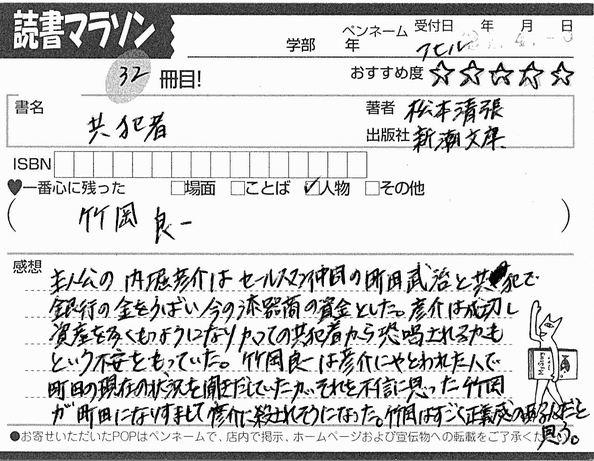 読書マラソン
学部 年 ペンネーム 受付日 年 月 日
アヒル
32 冊目! おすすめ度 ☆☆☆☆☆
書名 共犯者 著者 松本清張
出版社 新潮文庫
ISBN
♥一番心に残った □場面 □ことば ☑人物 □その他
( 竹岡良一 )
感想
主人公の内堀彦介はセールスマン仲間の町田武治と共犯で
銀行の金をうばい今の漆器商の資金とした。彦介は成功し
資産を多くもつようになりかつての共犯者から恐喝されるかも
という不安をもっていた。竹岡良一は彦介にやとわれた人で
町田の現在の状況を聞きだしていたが、それを不信に思った竹岡
が町田になりすまして彦介に殺されそうになった。竹岡はすごく正義感のある人だと
思う。
●お寄せいただいたPOPはペンネームで、店内で掲示、ホームページおよび宣伝物への転載をご了承くださ